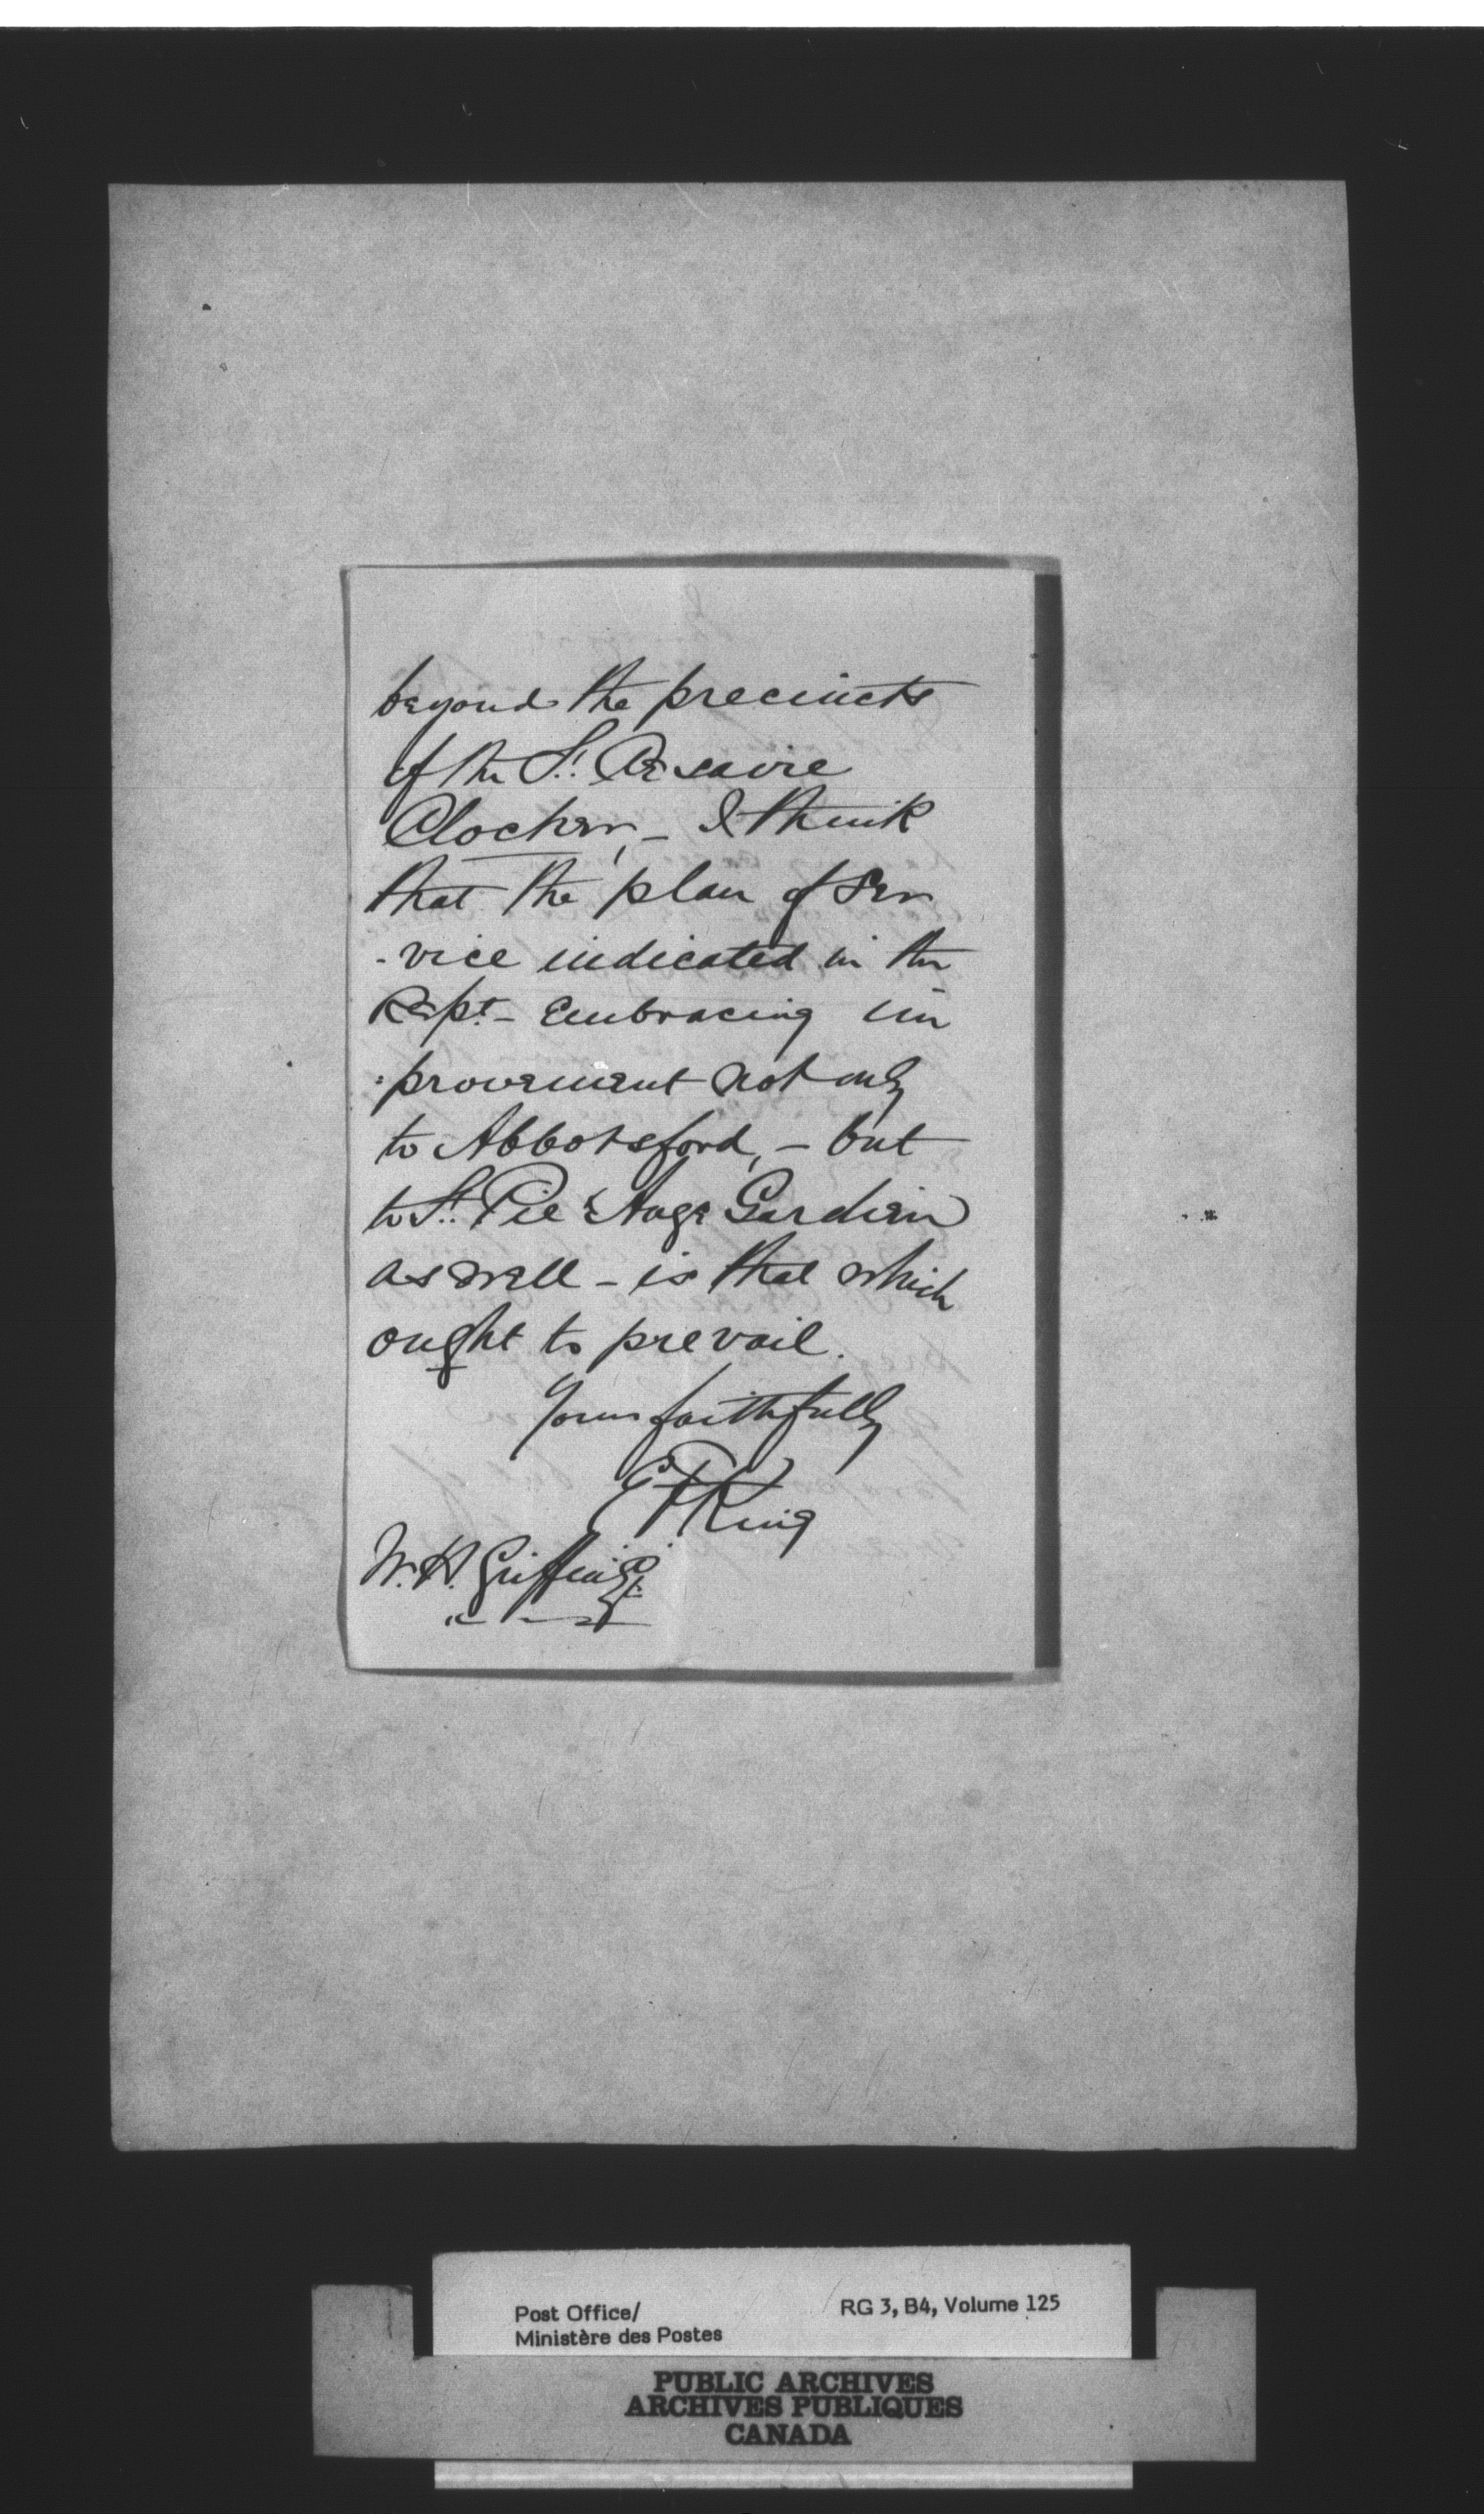 beyond the precincts
of the St. Cesaire
Clocher, - I think
that the plan of Ser
- vice indicated in the
Rept - embracing im
: provement not only
to Abbotsford, - but
to St. Pie & Ange Gardien
as well - is that which
ought to prevail.
Yours faithfully
E F King
W. H. Griffin Esq
Post Office/
Ministère des Postes
RG 3, B4, Volume 125
PUBLIC ARCHIVES
ARCHIVES PUBLIQUES
CANADA